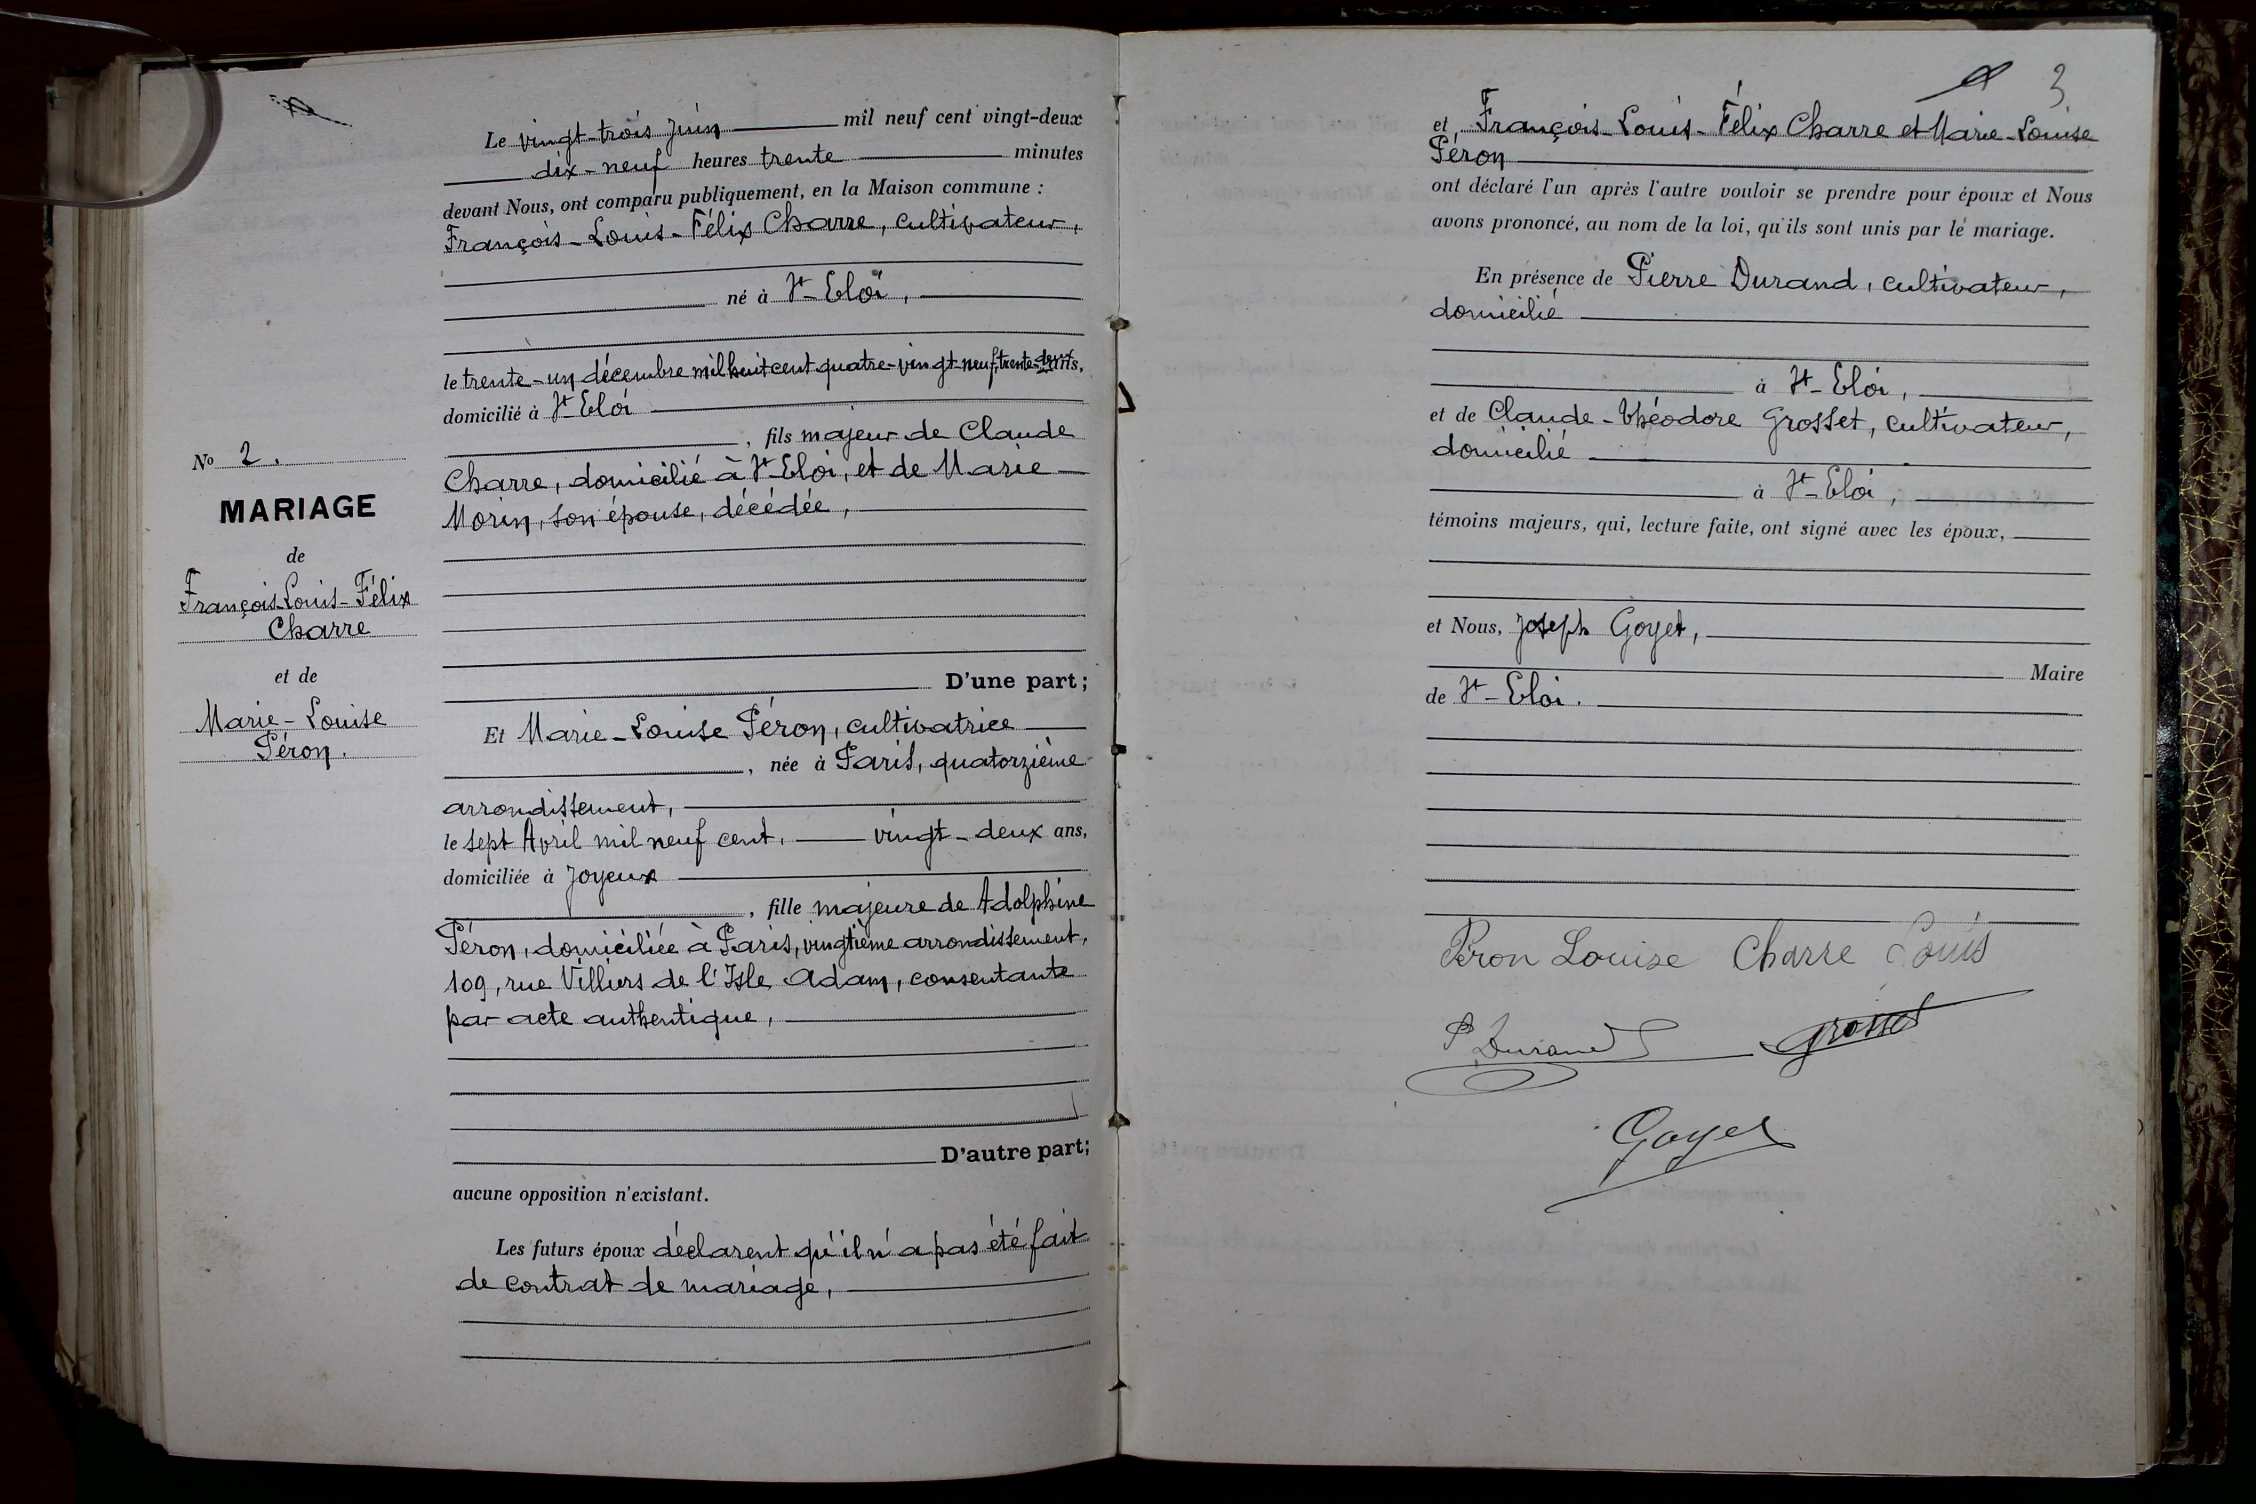 Le vingt-trois Juin mil neuf cent vingt-deux
dix-neuf heures trente minutes
devant Nous, ont comparu publiquement, en la Maison commune :
François-Louis-Félix Charre, cultivateur,
né à St-Eloi,
le trente-un décembre mil huit cent quatre-vingt-neuf, trente-deux ans,
domicilié à St-Eloi
, fils majeur de Claude
Charre, domicilié à St-Eloi, et de Marie
Morin, son épouse, décédée,
D'une part;
Nº 2.
MARIAGE
de
François-Louis-Félix
Charre
et de
Marie-Louise
Péron.
Et Marie-Louise Péron, cultivatrice
, née à Paris, quatorzième
arrondissement,
le sept Avril mil neuf cent, vingt-deux ans,
domiciliée à Joyeux
, fille majeure de Adolphine
Péron, domiciliée à Paris, vingtième arrondissement,
109, rue Villiers de l'Isle Adam, consentante
par acte authentique,
D'autre part;
aucune opposition n'existant.
Les futurs époux déclarent qu'il n'a pas été fait
de contrat de mariage,
3
et, François-Louis-Félix Charre et Marie-Louise
Péron
ont déclaré l'un après l'autre vouloir se prendre pour époux et Nous
avons prononcé, au nom de la loi, qu'ils sont unis par le mariage.
En présence de Pierre Durand, cultivateur,
domicilié
à St-Eloi,
et de Claude-Théodore Grosset, cultivateur,
domicilié
à St-Eloi,
témoins majeurs, qui, lecture faite, ont signé avec les époux,
et Nous, Joseph Goyet,
Maire
de St-Eloi.
Péron Louise Charre Louis
P Durand Grosset
Goyet